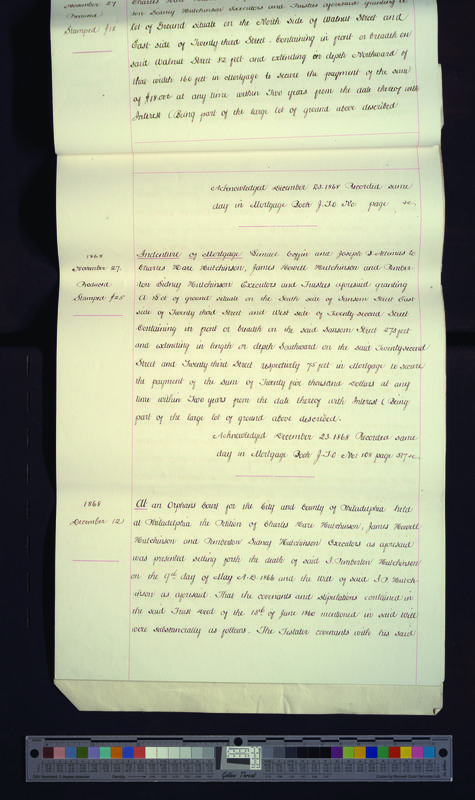 November 27
Produced
Stamped $18
ton Sidney Hutchinson Executors and Trustees aforesaid granting a
lot of Ground situate on the North side of Walnut Street and
East side of Twenty-third Street. Containing in front or breadth on
said Walnut Street 82 feet and extending in depth Northward of
that width 160 feet in Mortgage to secure the payment of the sum
of $18,000 at any time within Two years from the date thereof with
Interest (Being part of the large lot of ground above described
Acknowledged December 23. 1868 Recorded same
day in Mortgage Book J.T.O No. page &c.
1868
November 27.
Produced
Stamped $25
Indenture of Mortgage Lemuel Coffin and Joseph B. Altemus to
Charles Hare Hutchinson, James Howell Hutchinson and Pember-
ton Sidney Hutchinson Executors and Trustees aforesaid granting
A Lot of ground situate on the South side of Sansom Street East
side of Twenty third Street and West side of Twenty second Street
Containing in front or breadth on the said Sansom Street 273 feet
and extending in length or depth Southward on the said Twenty second
Street and Twenty third Street respectively 75 feet in Mortgage to secure
the payment of the sum of Twenty five thousand Dollars at any
time within Two years from the date thereof with Interest (Being
part of the large lot of ground above described.
Acknowledged December 23. 1868 Recorded same
day in Mortgage Book J.T.O No: 108 page 317 &c.
1868
December 12)
At an Orphans Court for the City and County of Philadelphia held
at Philadelphia the Petition of Charles Hare Hutchinson, James Howell
Hutchinson and Pemberton Sidney Hutchinson Executors as aforesaid
was presented setting forth the death of said I. Pemberton Hutchinson
on the 9th day of May A.D. 1866 and the Will of said I. P. Hutch-
inson as aforesaid That the covenants and stipulations contained in
the said Trust Deed of the 15th of June 1860 mentioned in said Will
were substancially as follows. The Testator covenants with his said
Golden Thread